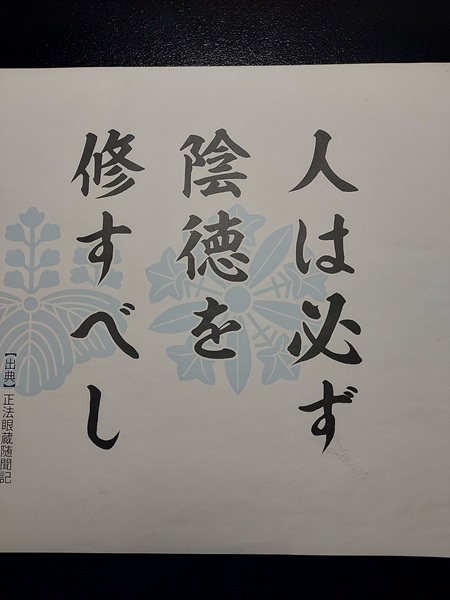 人は必ず
陰徳を
修すべし
【出典】正法眼蔵随聞記